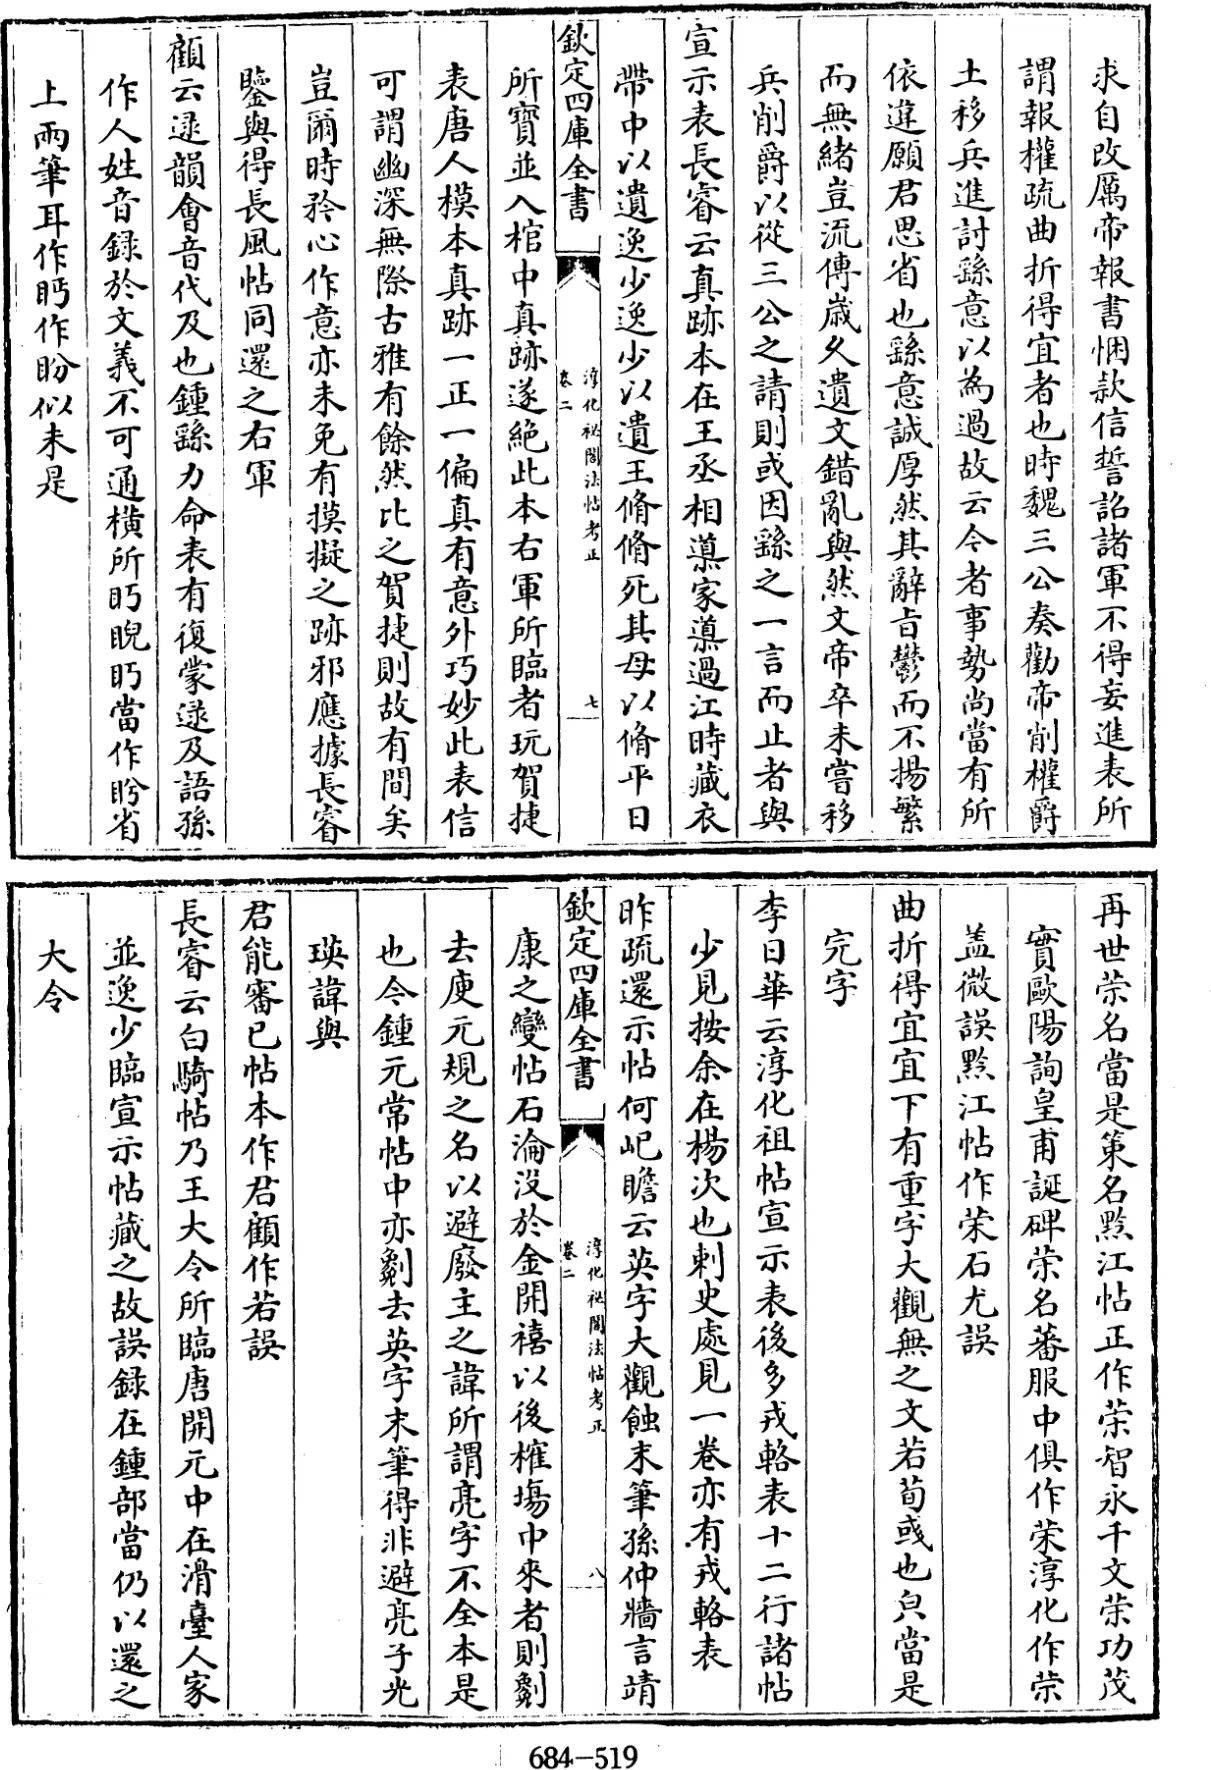 求自改厲帝報書悃款信誓詔諸軍不得妄進表所
謂報權疏曲折得宜者也時魏三公奏勸帝削權爵
土移兵進討繇意以為過故云今者事勢尚當有所
依違願君思省也繇意誠厚然其辭旨鬱而不揚繁
而無緒豈流傳歲久遺文錯亂與然文帝卒未嘗移
兵削爵以從三公之請則或因繇之一言而止者與
宣示表長睿云真跡本在王丞相導家導過江時藏衣
帶中以遺逸少逸少以遺王脩脩死其母以脩平日
欽定四庫全書
淳化祕閣法帖考正
卷二
七
所寶並入棺中真跡遂絶此本右軍所臨者玩賀捷
表唐人模本真跡一正一偏真有意外巧妙此表信
可謂幽深無際古雅有餘然比之賀捷則故有間矣
豈爾時矜心作意亦未免有摸擬之跡邪應據長睿
鑒與得長風帖同還之右軍
顧云逯韻會音代及也鍾繇力命表有復蒙逯及語孫
作人姓音録於文義不可通橫所眄睨眄當作盻省
上兩筆耳作眄作盼似未是
再世荣名當是策名黔江帖正作荣智永千文荣功茂
實歐陽詢皇甫誕碑荣名蕃服中俱作荣淳化作荣
盖微誤黔江帖作荣石尤誤
曲折得宜宜下有重字大觀無之文若荀彧也㒵當是
完字
李日華云淳化祖帖宣示表後多戎輅表十二行諸帖
少見按余在楊次也刺史處見一卷亦有戎輅表
昨疏還示帖何屺瞻云英字大觀蝕末筆孫仲牆言靖
欽定四庫全書
淳化祕閣法帖考正
卷二
八
康之變帖石淪没於金開禧以後榷塲中來者則劖
去庾元規之名以避廢主之諱所謂亮字不全本是
也今鍾元常帖中亦劖去英字末筆得非避亮子光
瑛諱與
君能審已帖本作君顧作若誤
長睿云白騎帖乃王大令所臨唐開元中在滑臺人家
並逸少臨宣示帖藏之故誤録在鍾部當仍以還之
大令
684-519